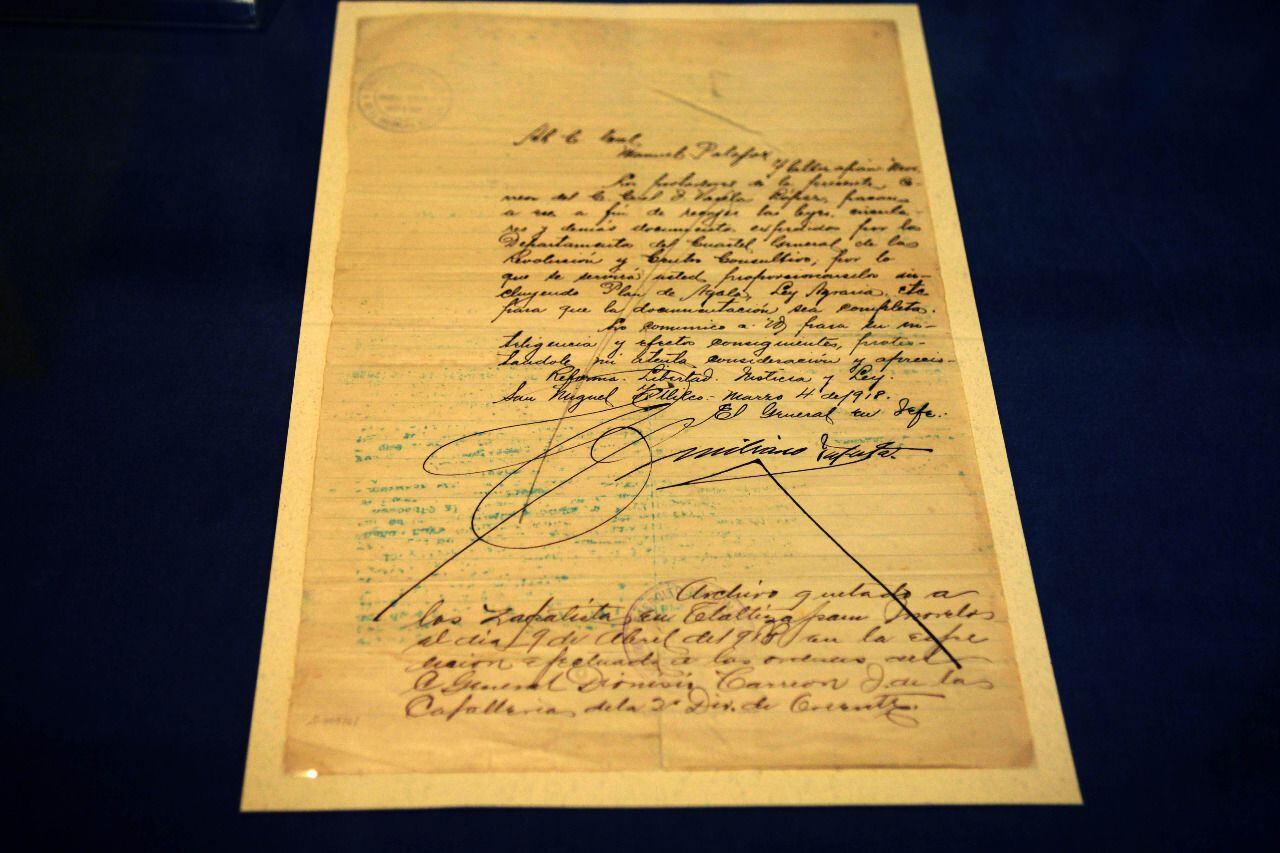 Al C. Gral.
Manuel Palafox
Los portadores de la presente, Co-
rreos del C. Gral. D. Varela López, pasan
a esa a fin de recojer las leyes, circula-
res y demás documentos expedidos por los
Departamentos del Cuartel General de la
Revolución y Centro Consultivo, por lo
que se servirá usted proporcionárselos in-
cluyendo Plan de Ayala, Ley Agraria, etc
para que la documentación sea completa.
Lo comunico a Ud para su in-
teligencia y efectos consiguientes, protes-
tándole mi atenta consideración y aprecio.-
Reforma. Libertad. Justicia y Ley.
San Miguel - Marzo 4 de 1918.
El General en Jefe.
Emiliano Zapata.
Archivo quitado a
los Zapatista en Tlaltizapam Morelos
el día 9 de Abril de 1918 en la espe
dicion efectuada a las ordenes del
C General Dionisio Carreon J. de las
Caballerias de la 2ª Div. de Oriente.